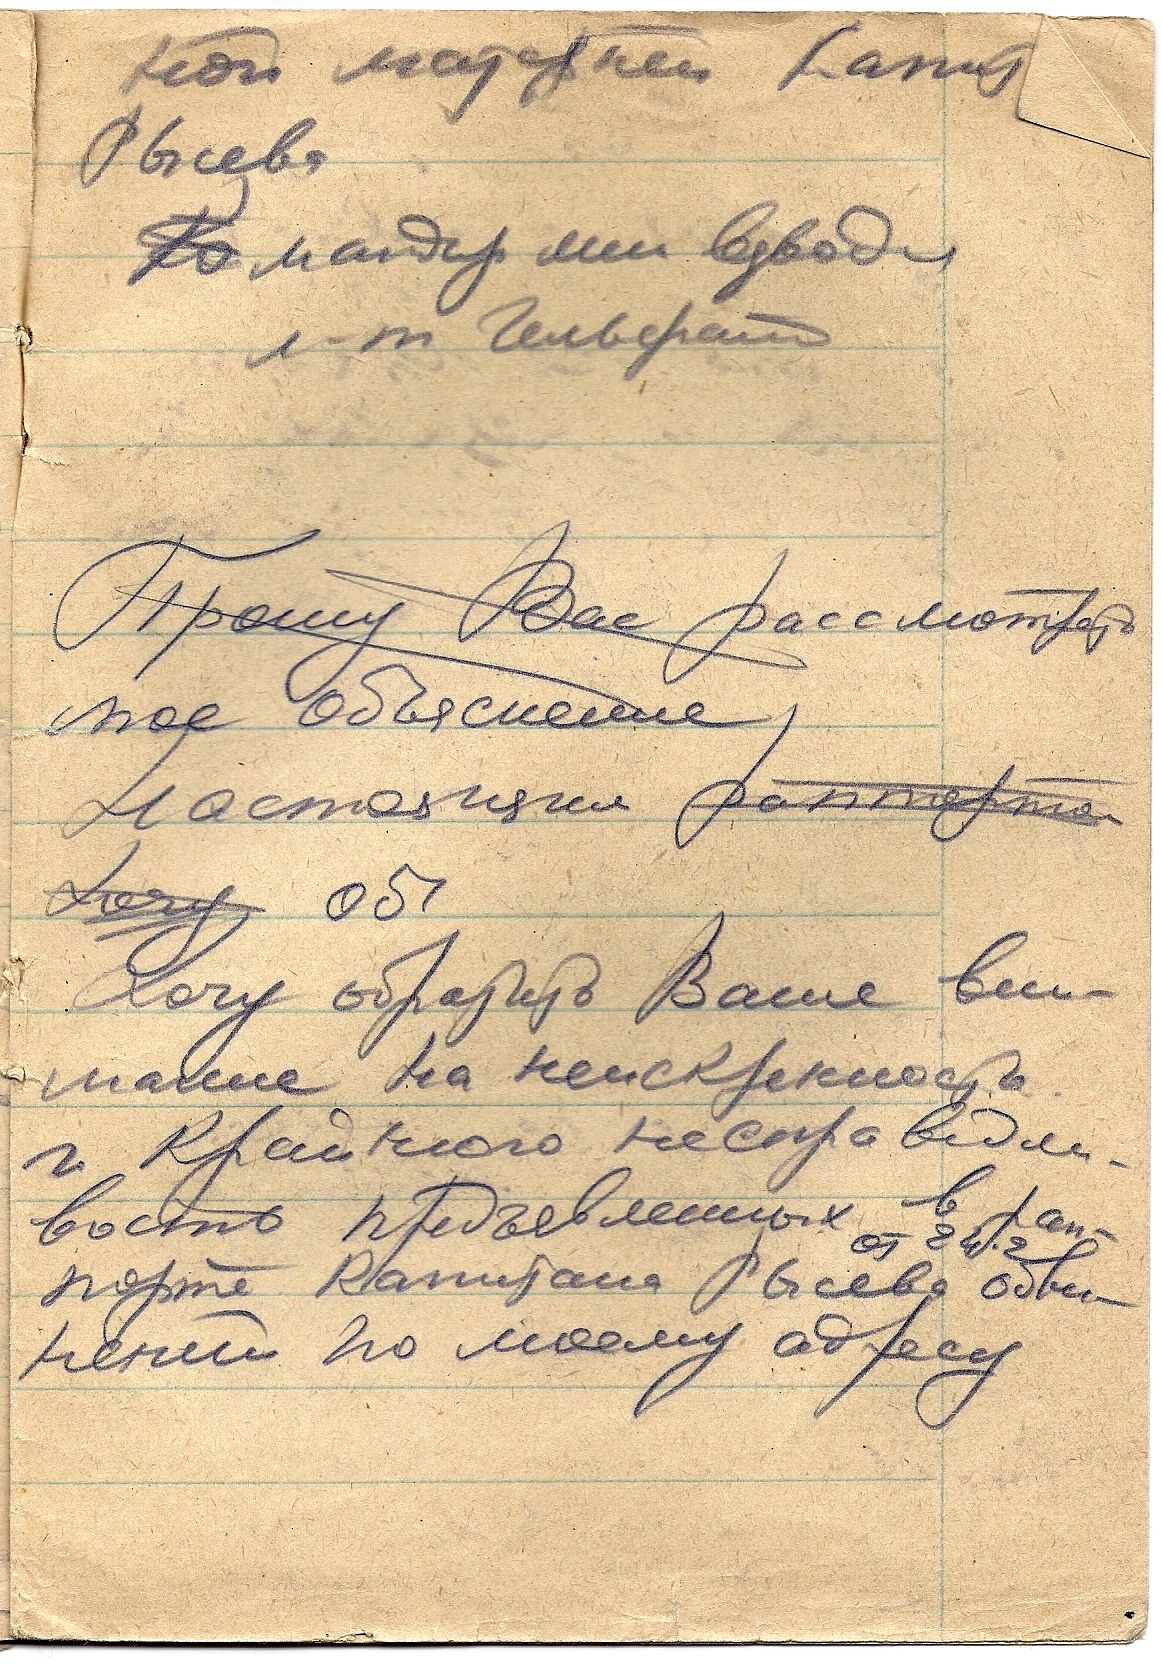 ной матерней Капит
Рысева
Командир мин взвода
л-т Гельфанд
Прошу Вас рассмотреть
мое объяснение
Настоящим рапортом
Хочу об
Хочу обратить Ваше вни-
мание на неискренность
и крайнюю несправедли-
вость предъявленных в рап-
от 24.2
порте капитана Рысева обви-
нений по моему адресу